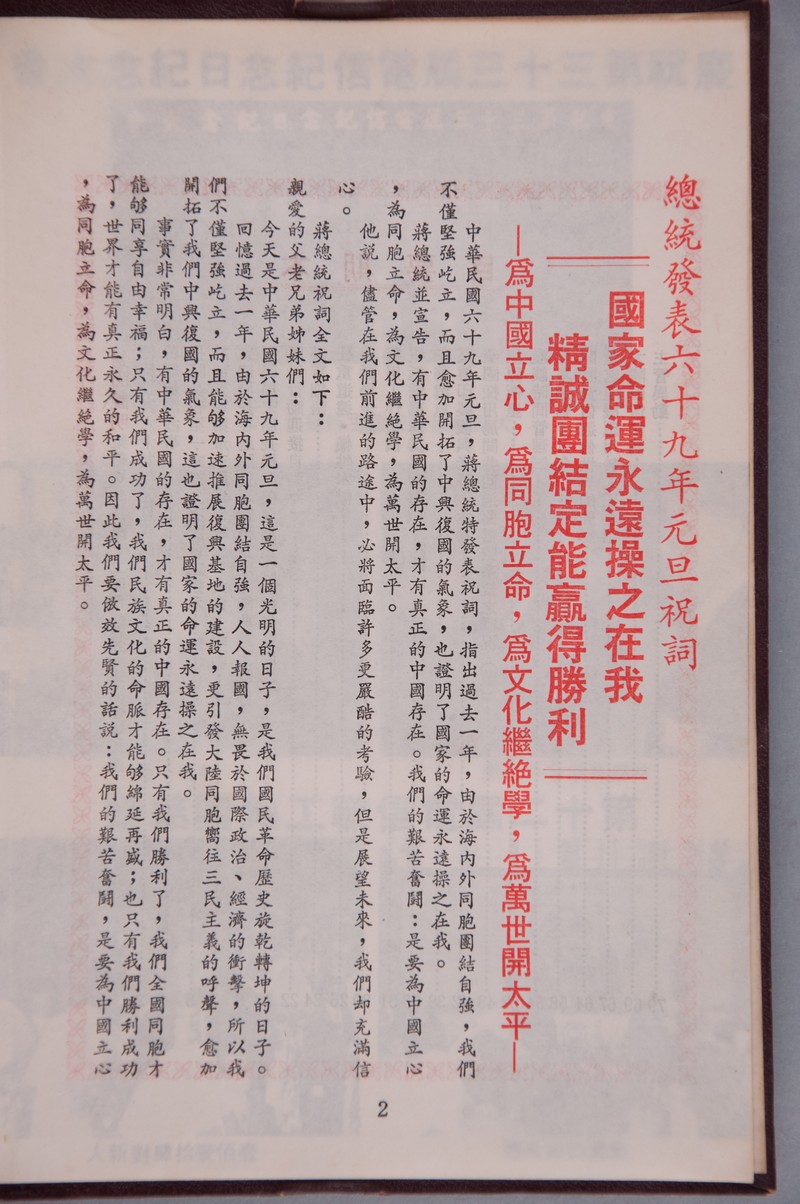 總統發表六十九年元旦祝詞
國家命運永遠操之在我
精誠團結定能贏得勝利
—爲中國立心，爲同胞立命，爲文化繼絕學，爲萬世開太平—
中華民國六十九年元旦，蔣總統特發表祝詞，指出過去一年，由於海內外同胞團結自強，我們
不僅堅強屹立，而且愈加開拓了中興復國的氣象，也證明了國家的命運永遠操之在我。
蔣總統並宣告，有中華民國的存在，才有真正的中國存在。我們的艱苦奮鬪：是要為中國立心
，為同胞立命，為文化繼絕學，為萬世開太平。
他說，儘管在我們前進的路途中，必將面臨許多更嚴酷的考驗，但是展望未來，我們却充滿信
心。
蔣總統祝詞全文如下：
親愛的父老兄弟姊妹們：
今天是中華民國六十九年元旦，這是一個光明的日子，是我們國民革命歷史旋乾轉坤的日子。
回憶過去一年，由於海內外同胞團結自強，人人報國，無畏於國際政治、經濟的衝擊，所以我
們不僅堅強屹立，而且能够加速推展復興基地的建設，更引發大陸同胞嚮往三民主義的呼聲，愈加
開拓了我們中興復國的氣象，這也證明了國家的命運永遠操之在我。
事實非常明白，有中華民國的存在，才有真正的中國存在。只有我們勝利了，我們全國同胞才
能够同享自由幸福；只有我們成功了，我們民族文化的命脈才能够綿延再盛；也只有我們勝利成功
了，世界才能有真正永久的和平。因此我們要倣效先賢的話說：我們的艱苦奮鬪，是要為中國立心
，為同胞立命，為文化繼絕學，為萬世開太平。
2